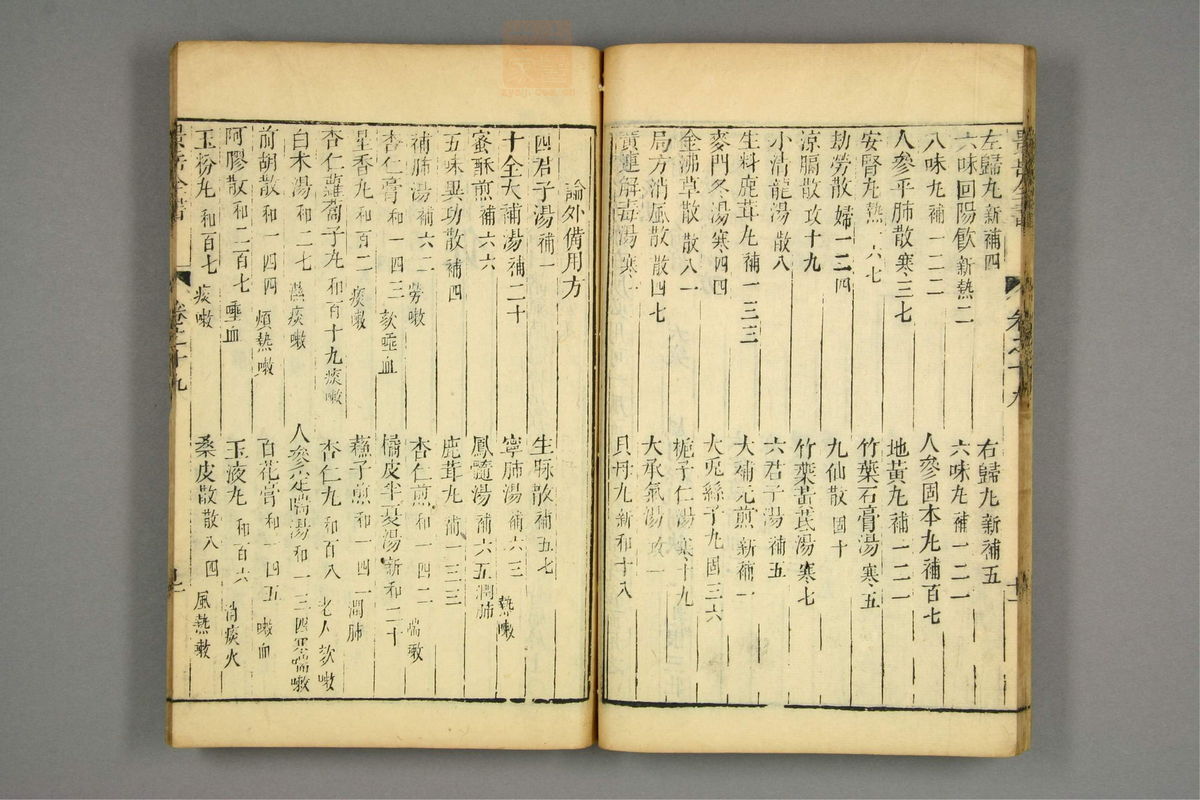 左歸丸新補四 右歸丸新補五
六味回陽飲新熱二 六味丸補一二一
八味丸補一二二 人參固本丸補百七
人參平肺散寒三七 地黃丸補一二一
安腎丸熱一六七 竹葉石膏湯寒五
劫勞散婦一二四 九仙散固十
涼膈散攻十九 竹葉黃芪湯寒七
小清龍湯散八 六君子湯補五
生料鹿茸丸補一三三 大補元煎新補一
麥門冬湯寒四四 大兎絲子丸固三六
金沸草散散八一 梔子仁湯寒十九
局方消風散散四七 大承氣湯攻一
黃連解毒湯寒一 貝母丸新和十八
景岳全書 卷之十九
論外備用方
四君子湯補一 生脉散補五七
十全大補湯補二十 寧肺湯補六三 熱嗽
蜜酥煎補六六 鳳髓湯補六五潤肺
五味異功散補四 鹿茸丸補一三三
補肺湯補六二 勞嗽 杏仁煎和一四二 喘嗽
杏仁膏和一四三 欬唾血 橘皮半夏湯新和二十
星香丸和百二 痰嗽 蘇子煎和一四一潤肺
杏仁蘿蔔子丸和百十九痰嗽 杏仁丸和百八 老人欬嗽
白术湯和二七 濕痰嗽 人參定喘湯和一三四寒喘嗽
前胡散和一四四 煩熱嗽 百花膏和一四五 嗽血
阿膠散和二百七 唾血 玉液丸和百六 消痰火
玉粉丸和百七 痰嗽 桑皮散散八四 風熱嗽
景岳全書 卷之十九